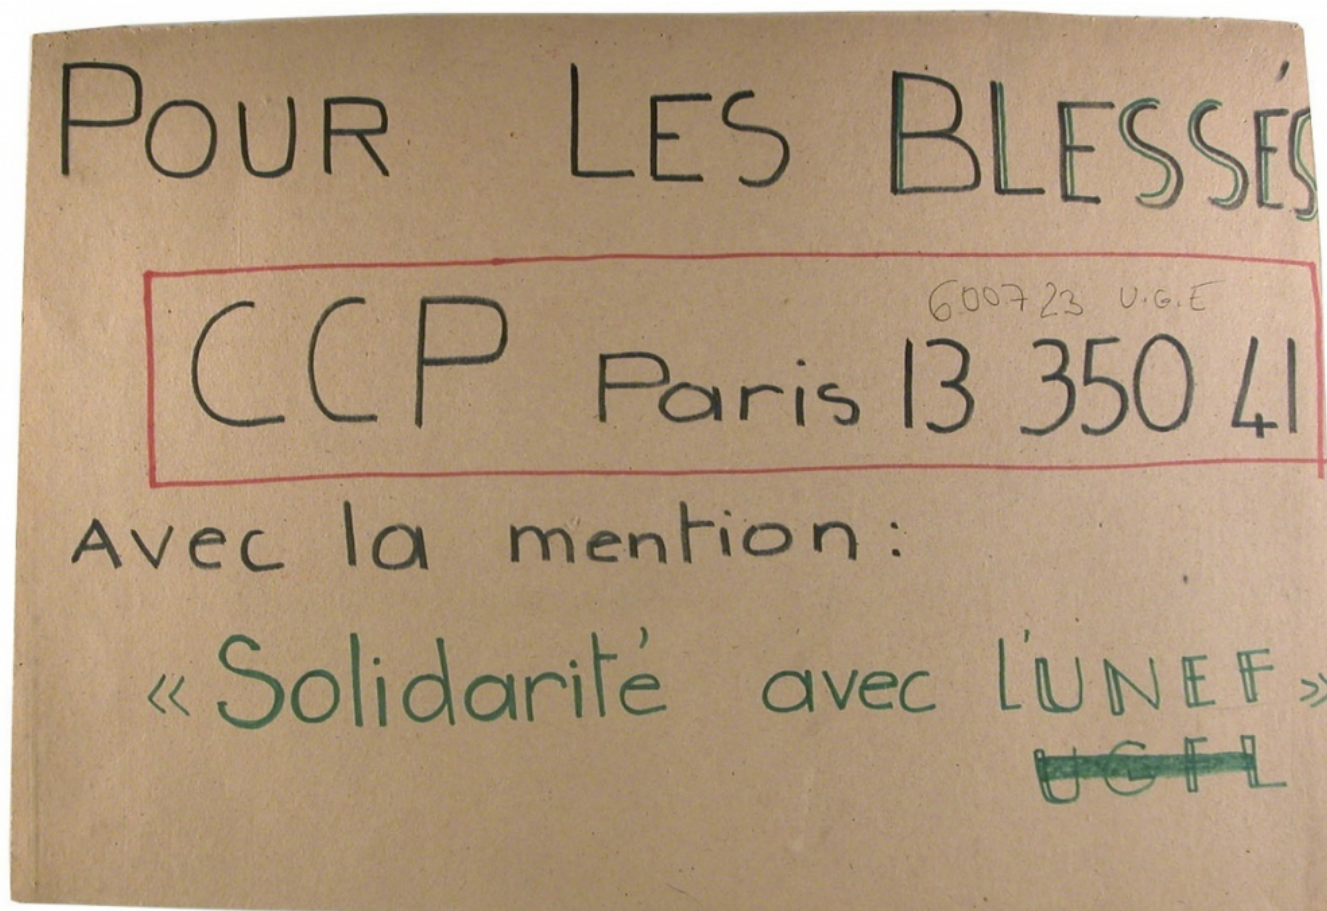 POUR LES BLESSÉS
600723 U.G.E
CCP Paris 13 350 41
Avec la mention :
« Solidarité avec l'UNEF »